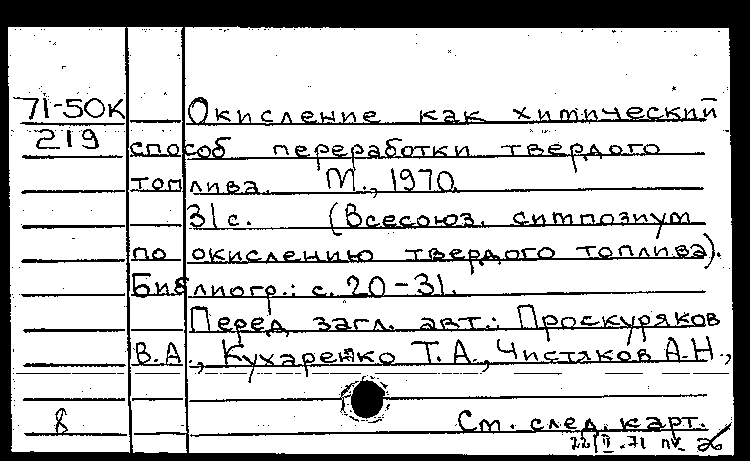 71-50К Окисление как химический
219 способ переработки твердого
топлива. М., 1970.
31 с. (Всесоюз. симпозиум
по окислению твердого топлива).
Библиогр.: с. 20-31.
Перед загл. авт.: Проскуряков
В.А., Кухаренко Т.А., Чистяков А.Н.,
8 См. след. карт.
22/II-71